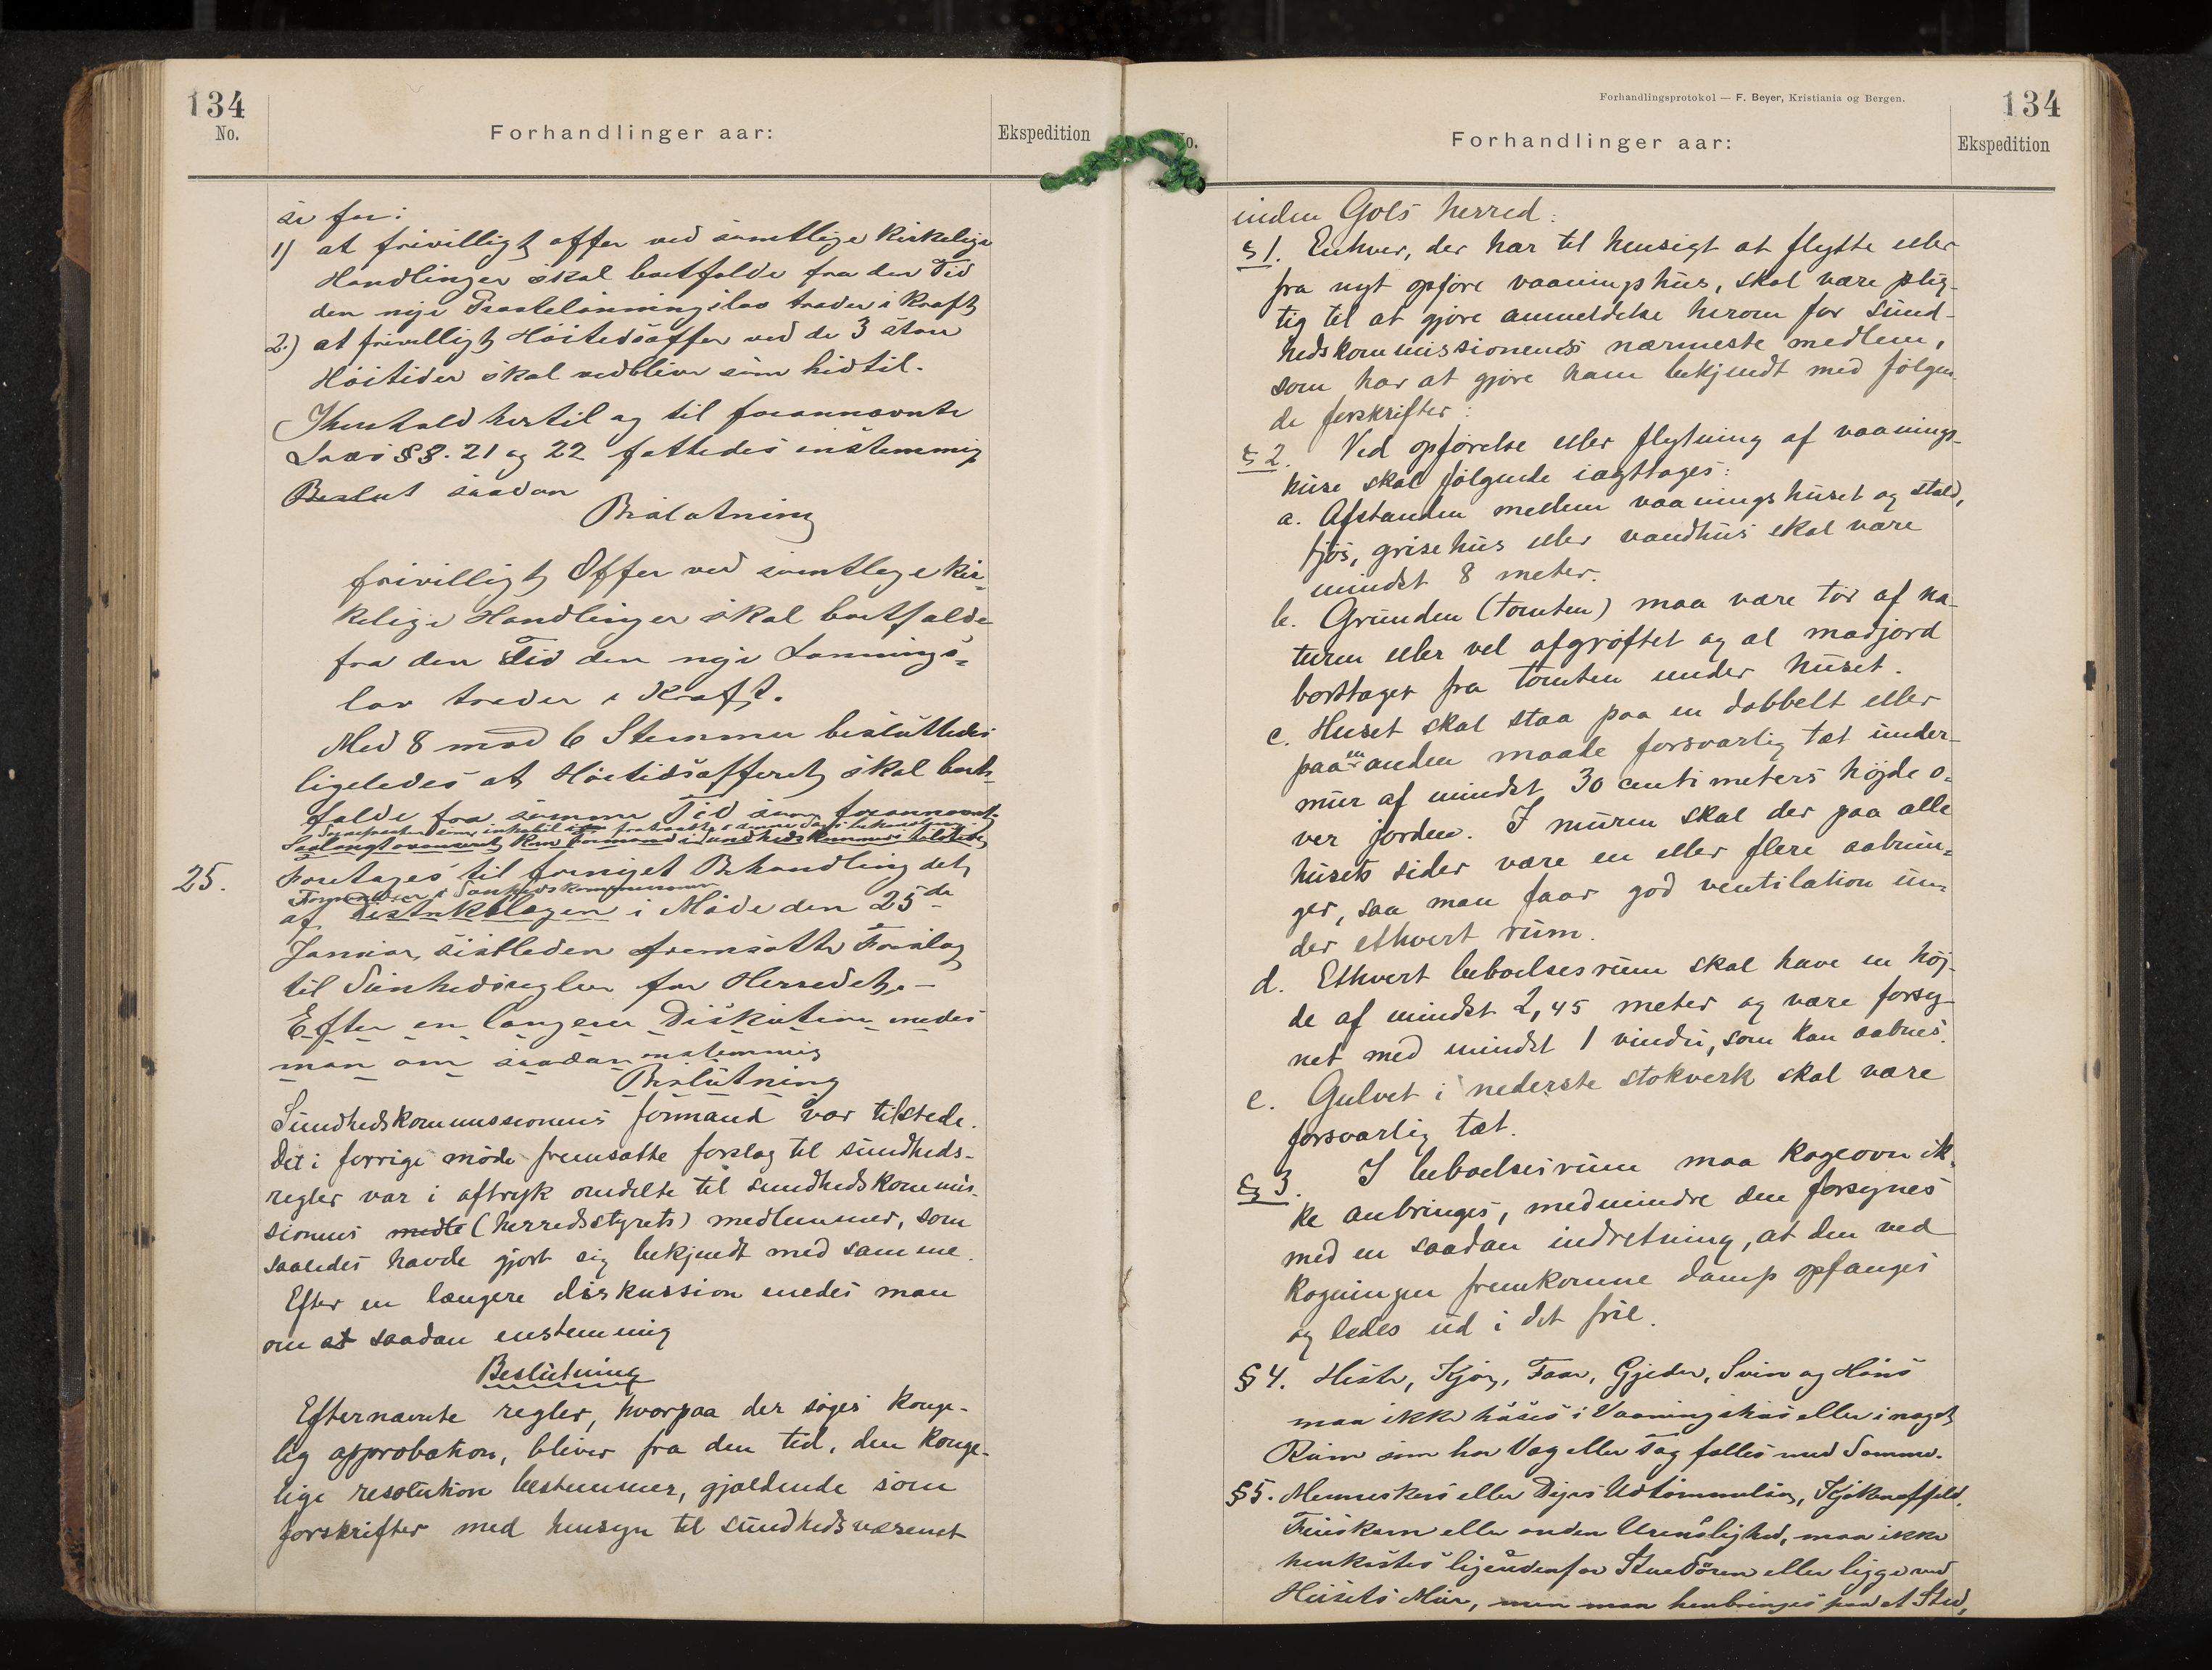 134
No.
Forhandlinger aar:
Ekspedition
er for:
1) at frivilligt offer ved samtlige kirkelige
Handlinger skal bortfalde fra den Tid
den nye Præstelønningslov træder i Kraft
2.) at frivilligt Høitidsoffer ved de 3 store
Høitider skal vedblive som hidtil.
I Henhold hertil og til forannævnte
Lovs §§. 21 og 22 fattedes enstemmig
Beslut saadan
Beslutning
frivilligt Offer ved samtlige kir-
kelige Handlinger skal bortfalde
fra den Tid den nye Lønnings-
lov træder i Kraft.
Med 8 mod 6 Stemmer besluttedes
ligeledes at Høitidsofferet skal bort-
falde fra samme Tid som forannævnt.
25.
Foretages til fornyet Behandling det
Formanden i Sundhedskommissionen
af Distriktslægen i Møde den 25de
Januar sistleden fremsatte Forslag
til Sunhedsregler for Herredet. —
Efter en længere Diskution enedes
man om saadan enstemmig
Beslutning
Sundhedskommissionens formand var tilstede.
Det i forrige møde fremsatte forslag til sundheds-
regler var i aftryk omdelte til sundhedskommis-
sionens medle (herredsstyrets) medlemmer, som
saaledes havde gjort sig bekjendt med samme.
Efter en længere diskussion enedes man
om at saadan enstemmig
Beslutning
Efternævnte regler, hvorpaa der søges konge-
lig approbation, bliver fra den tid, den konge-
lige resolution bestemmer, gjældende som
forskrifter med hensyn til sundhedsvæsenet
Forhandlingsprotokol — F. Beyer, Kristiania og Bergen.
134
No.
Forhandlinger aar:
Ekspedition
inden Gols herred:
§ 1. Enhver, der har til hensigt at flytte eller
fra nyt opføre vaaningshus, skal være plig-
tig til at gjøre anmeldelse herom for sund-
hedskommissionens nærmeste medlem,
som har at gjøre ham bekjendt med følgen-
de forskrifter:
§ 2. Ved opførelse eller flytning af vaanings-
huse skal følgende iagttages:
a. Afstanden mellem vaaningshuset og stald,
fjøs, grisehus eller vandhus skal være
mindst 8 meter.
b. Grunden (tomten) maa være tør af na-
turen eller vel afgrøftet og al madjord
borttaget fra tomten under huset.
c. Huset skal staa paa en dobbelt eller
paa en anden maade forsvarlig tæt under-
mur af mindst 30 centimeters højde o-
ver jorden. I muren skal der paa alle
husets sider være en eller flere aabnin-
ger, saa man faar god ventilation un-
der ethvert rum.
d. Ethvert beboelsesrum skal have en høj-
de af mindst 2,45 meter og være forsy-
net med mindst 1 vindu, som kan aabnes.
e. Gulvet i nederste stokverk skal være
forsvarlig tæt.
§ 3. I beboelsesrum maa kogeovn ik-
ke anbringes, medmindre den forsynes
med en saadan indretning, at den ved
kogningen fremkomne damp opfanges
og ledes ud i det frie.
§ 4. Heste, Kjør, Faar, Gjeder, Svin og Høns
maa ikke huses i Vaaningshus eller i noget
Rum som har Væg eller Tag fælles med Samme.
§ 5. Menneskers eller Dyrs Udtømmelser, Kjøkenaffald,
Feieskarn eller anden Urenslighed, maa ikke
henkastes lige udenfor Stuedøren eller ligge ved
Husets Mur, men maa henbringes paa et Sted,